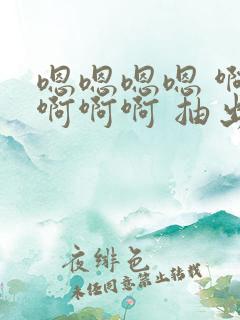 嗯嗯嗯嗯 啊
啊啊啊 抽出
夜绯色
未经同意禁止转载